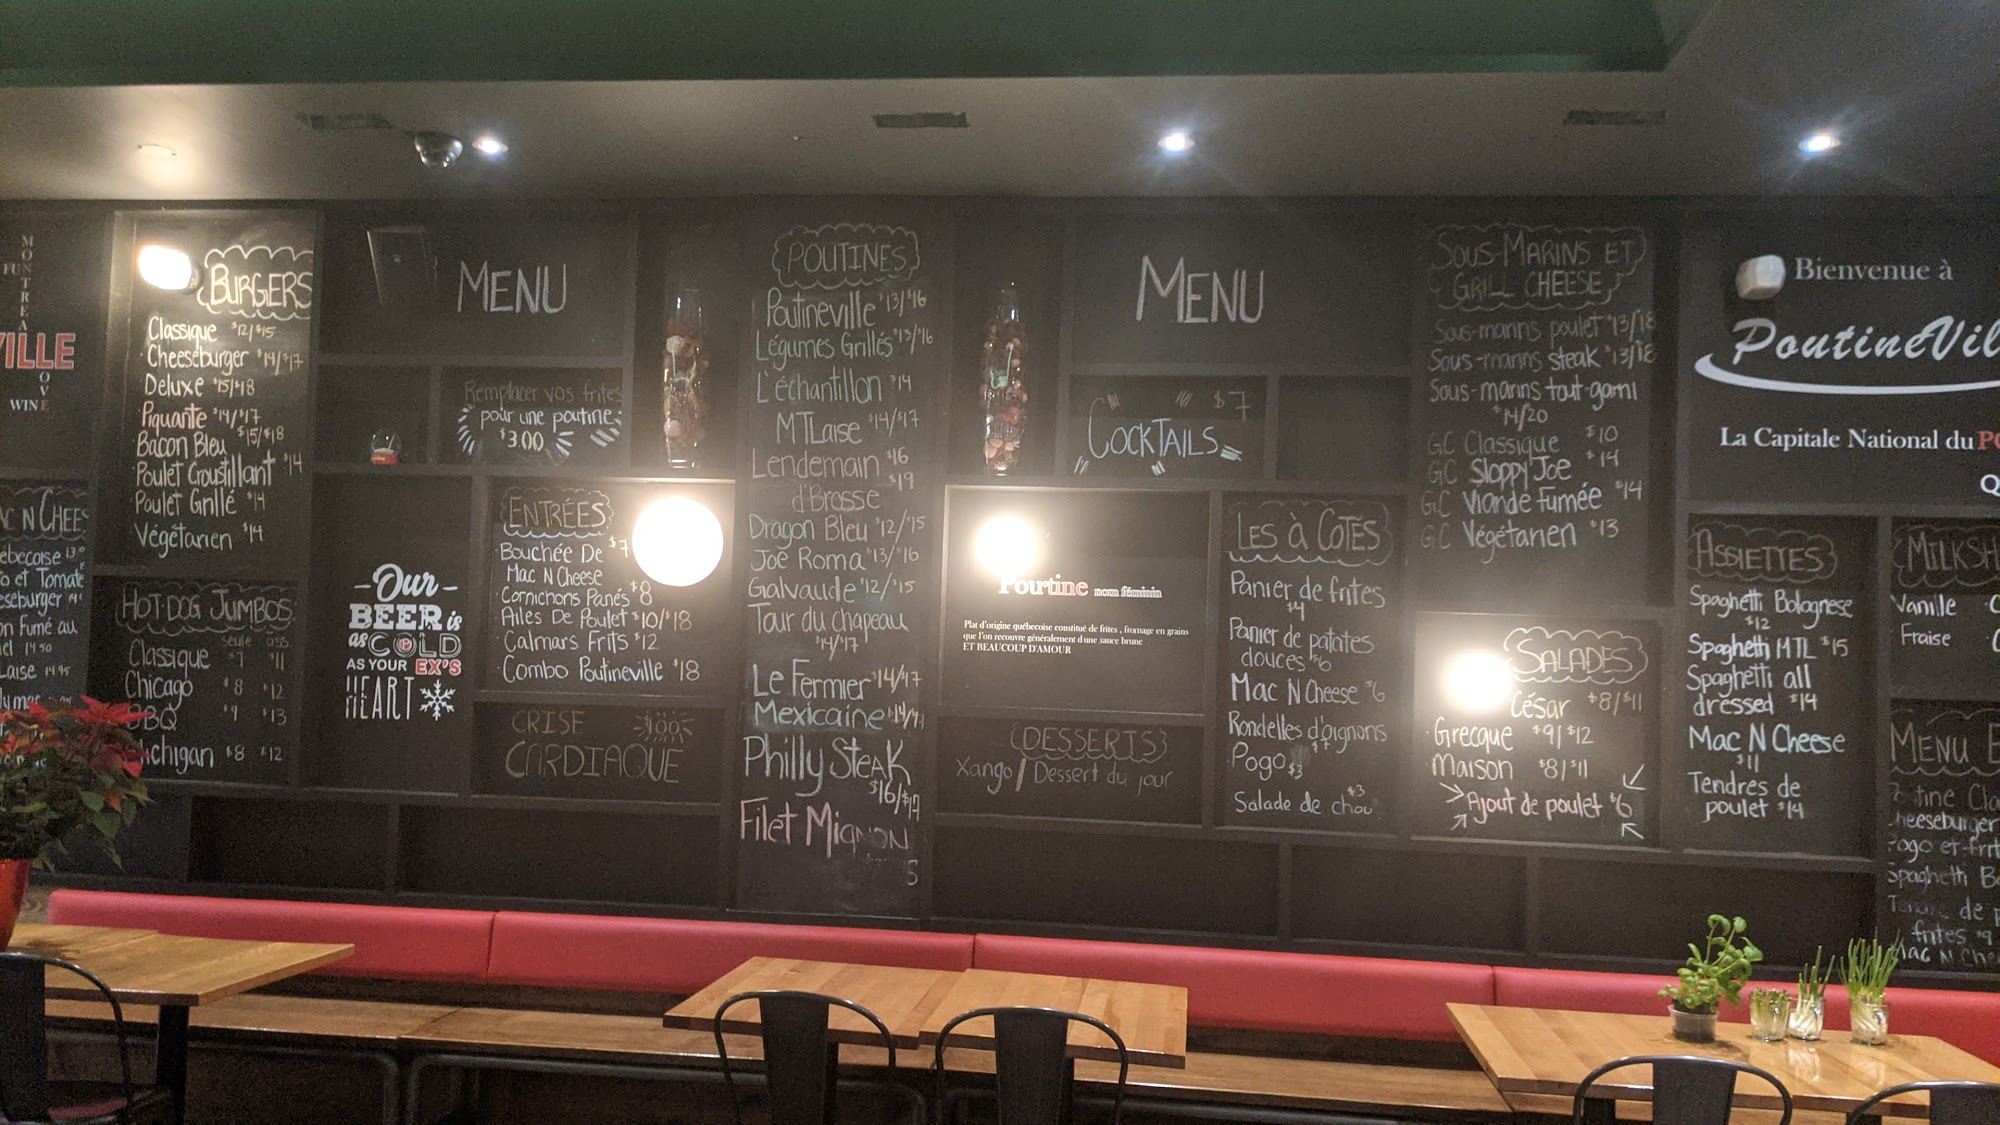 MONTREAL
FUN
VILLE
LOVE
WINE
AC N CHEE
ébécoise 13⁰
o et Tomate
eseburger 14
on Fumé au
14.50
Laise 14.95
BURGERS
Classique $12/$15
Cheeseburger $14/$17
Deluxe $15/$18
Piquante $14/$17
$15/$18
Bacon Bleu
Poulet Croustillant $14
Poulet Grillé $14
Végétarien $14
HOT-DOG JUMBOS
seule ass.
Classique $7 $11
Chicago $8 $12
BBQ $9 $13
ichigan $8 $12
MENU
Remplacer vos frites
pour une poutine:
$3.00
-Our-
BEER is
as COLD
AS YOUR EX'S
HEART
ENTRÉES
Bouchée De $7
Mac N Cheese
Cornichons Panés $8
Ailes De Poulet $10/$18
Calmars Frits $12
Combo Poutineville $18
CRISE
CARDIAQUE
$100
POUTINES
Poutineville $13/$16
Légumes Grillés $13/$16
L'échantillon $14
MTLaise $14/$17
Lendemain $16
d'Brosse $19
Dragon Bleu $12/$15
Joe Roma $13/$16
Galvaude $12/$15
Tour du chapeau
$14/$17
Le Fermier $14/$17
Mexicaine $14/$17
Philly Steak
$16/$19
Filet Mignon
5
Poutine nom féminin
Plat d'origine québecoise constitué de frites , fromage en grains
que l'on recouvre généralement d une sauce brune
ET BEAUCOUP D'AMOUR
(DESSERTS)
Xango / Dessert du jour
MENU
$7
COCKTAILS
LES À CÔTÉS
Panier de frites
$4
Panier de patates
douces $6
Mac N Cheese $6
Rondelles d'oignons
$7
Pogo $3
$3
Salade de chou
SOUS-MARINS ET
GRILL CHEESE
Sous-marins poulet $13/18
Sous-marins steak $13/18
Sous-marins tout-garni
$14/20
GC Classique $10
GC Sloppy Joe $14
GC Viande Fumée $14
GC Végétarien $13
SALADES
César $8/$11
Grecque $9/$12
Maison $8/$11
Ajout de poulet $6
Bienvenue à
PoutineVil
La Capitale National du PO
Q
ASSIETTES
Spaghetti Bolognese
$12
Spaghetti MTL $15
Spaghetti all
dressed $14
Mac N Cheese
$11
Tendres de
poulet $14
MILKSH
Vanille
Fraise
MENU E
Poutine Cla
heeseburger
Pogo et frit
Spaghetti Bo
Tendre de p
frites $9
Mac N Chee